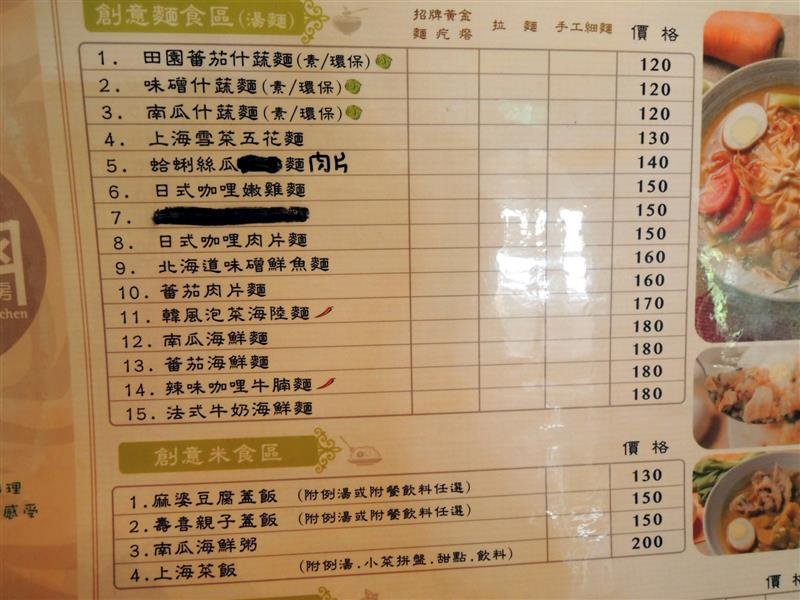 創意麵食區(湯麵) 招牌黃金麵疙瘩 拉麵 手工細麵 價格
1. 田園蕃茄什蔬麵(素/環保) 120
2. 味磳什蔬麵(素/環保) 120
3. 南瓜什蔬麵(素/環保) 120
4. 上海雪菜五花麵 130
5. 蛤蜊絲瓜 麵 肉片 140
6. 日式咖哩嫩雞麵 150
7. 150
8. 日式咖哩肉片麵 150
9. 北海道味磳鮮魚麵 160
10. 蕃茄肉片麵 160
11. 韓風泡菜海陸麵 170
12. 南瓜海鮮麵 180
13. 蕃茄海鮮麵 180
14. 辣味咖哩牛腩麵 180
15. 法式牛奶海鮮麵 180
創意米食區 價格
1. 麻婆豆腐蓋飯 (附例湯或附餐飲料任選) 130
2. 壽喜親子蓋飯 (附例湯或附餐飲料任選) 150
3. 南瓜海鮮粥 150
4. 上海菜飯 (附例湯.小菜拼盤.甜點.飲料) 200
房
chen
理
感受
價